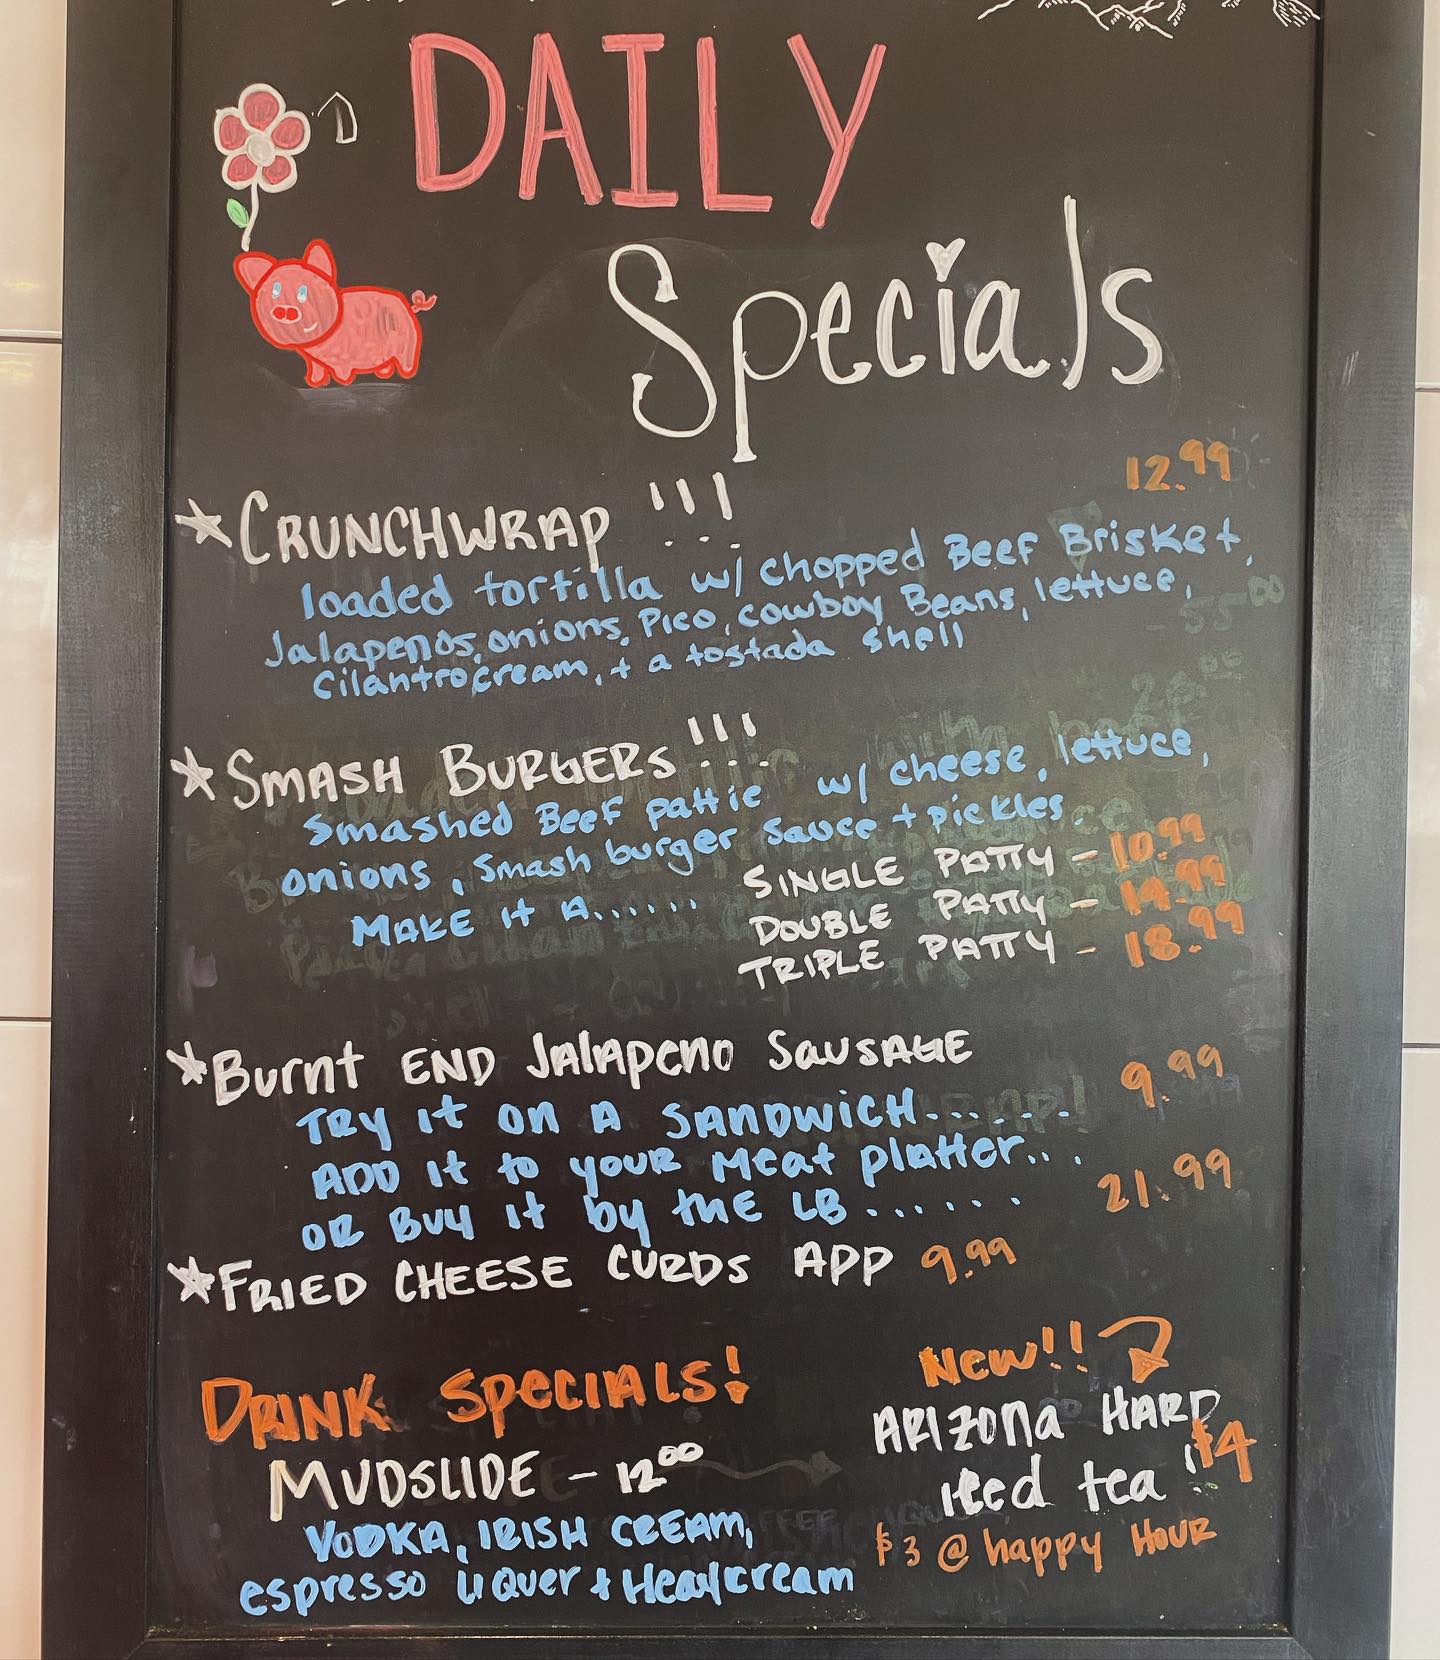 DAILY
Specials
CRUNCHWRAP !!! 12.99
loaded tortilla w/ chopped Beef Brisket,
Jalapenos, onions, Pico, cowboy Beans, lettuce,
Cilantro cream, + a tostada shell
SMASH BURGERS!!!
Smashed Beef pattie w/ cheese, lettuce,
onions, Smash burger sauce + pickles.
MAKE it A...... SINGLE PATTY - 10.99
DOUBLE PATTY - 14.99
TRIPLE PATTY - 18.99
Burnt END JalAPeno SauSAGE
TRY it on A SANDWICH...... 9.99
ADD it to your Meat platter...
OR BUY it by the LB ...... 21.99
FRIED CHEESE CURDS APP 9.99
DRINK SPECIALS!
MUDSLIDE - 12.00
VODKA, IRISH CREAM,
espresso LiQuer + Heavycream
New!!
ARIZONA HARD
iced tea! $4
$3 @ happy Hour